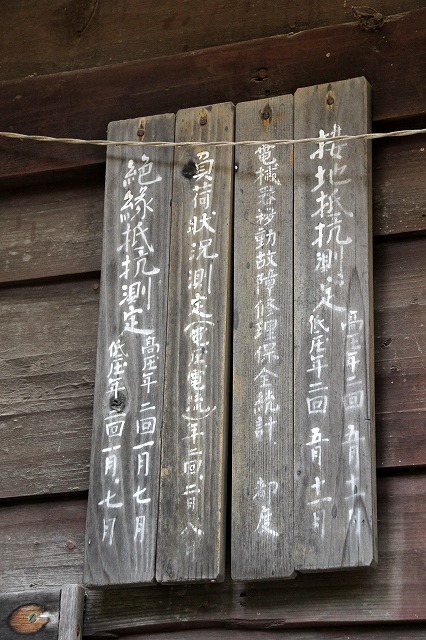 接地抵抗測定
高圧年二回 五月十一月
低圧年二回 五月十一月
電械器移動故障修理保全統計 都度
負荷状況測定(電圧電流)年二回 二月八
絶縁抵抗測定
高圧年二回 一月七月
低圧年二回 一月、七月